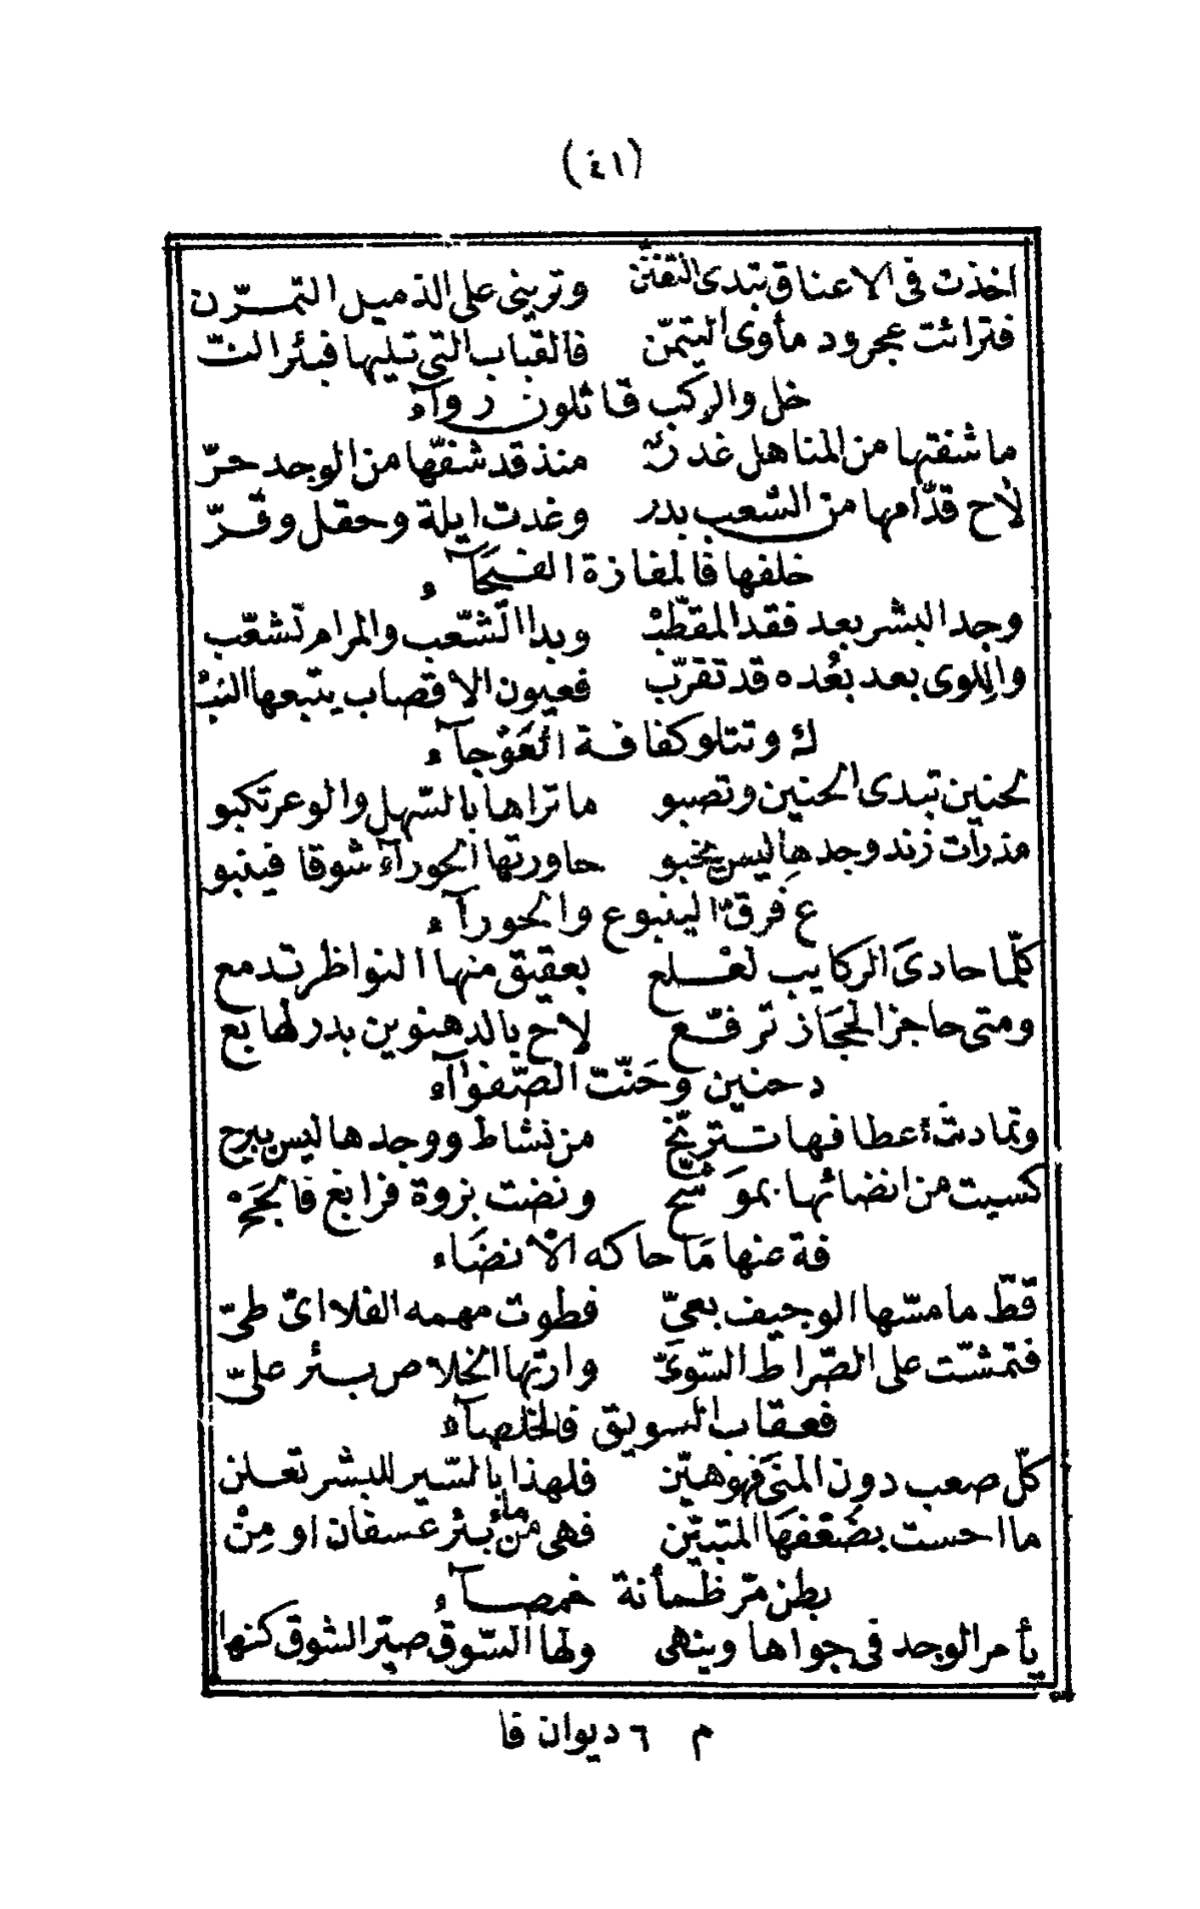 (٤١)
اخذت فى الاعناق تبدى التفنن وترينى على الذميل التمرّن
فترائت عجرود مأوى اليتمّن فالقباب التى تليها فبئر النّ
خل والركب قائلون رواء
ما شفتها من المناهل غدرٌ منذ قد شفّها من الوجد حرّ
لاح قدّامها من الشعب بدر وغدت ايلة وحقل وقرّ
خلفها فالمفازة الفيحآء
وجد البشر بعد فقد المقطّب وبدا الشّعب والمرام تشعّب
واللوى بعد بُعده قد تقرّب فعيون الاقصاب يتبعها النبْ
ك وتتلو كفافة العَوْجآء
لحنين تبدى الحنين وتصبو ما تراها بالسّهل والوعر تكبو
مذ رات زند وجدها ليس يخبو حاورتها الحورآء شوقا فينبو
ع فرقّ الينبوع والحورآء
كلّما حادىَ الركايب لعلع بعقيق منها النواظر تدمع
ومتى حاجز الحجَاز ترفّع لاح بالدهنوين بدر لها بع
د حنين وحَنّت الصّفوآء
وتمادت أعطافها تترنّح من نشاط ووجدها ليس يبرح
كسيت من انضائها بموَشّح ونضت بزوة فرابغ فالجَحْ
فة عنها مَا حاكه الأنضَاء
قطّ ما مسّها الوجيف بعىّ فطوت مهمه الفلا اىّ طىّ
فتمشّت على الصّراط السّوىّ وارتها الخلاص بئر علىّ
فعقاب السويق فالخلصآء
كلّ صعب دون المنىَ فهو هيّن فلهذا بالسّير للبشر تعلن
ما احست بضَعفهَا المتبيّن فهى من مآء بئر عسفان او مِنْ
بطن مرّ ظمأنة خمصآء
يأمر الوجد فى جواها وينهى ولها السّوق صيّر الشوق كنها
م ٦ ديوان قا